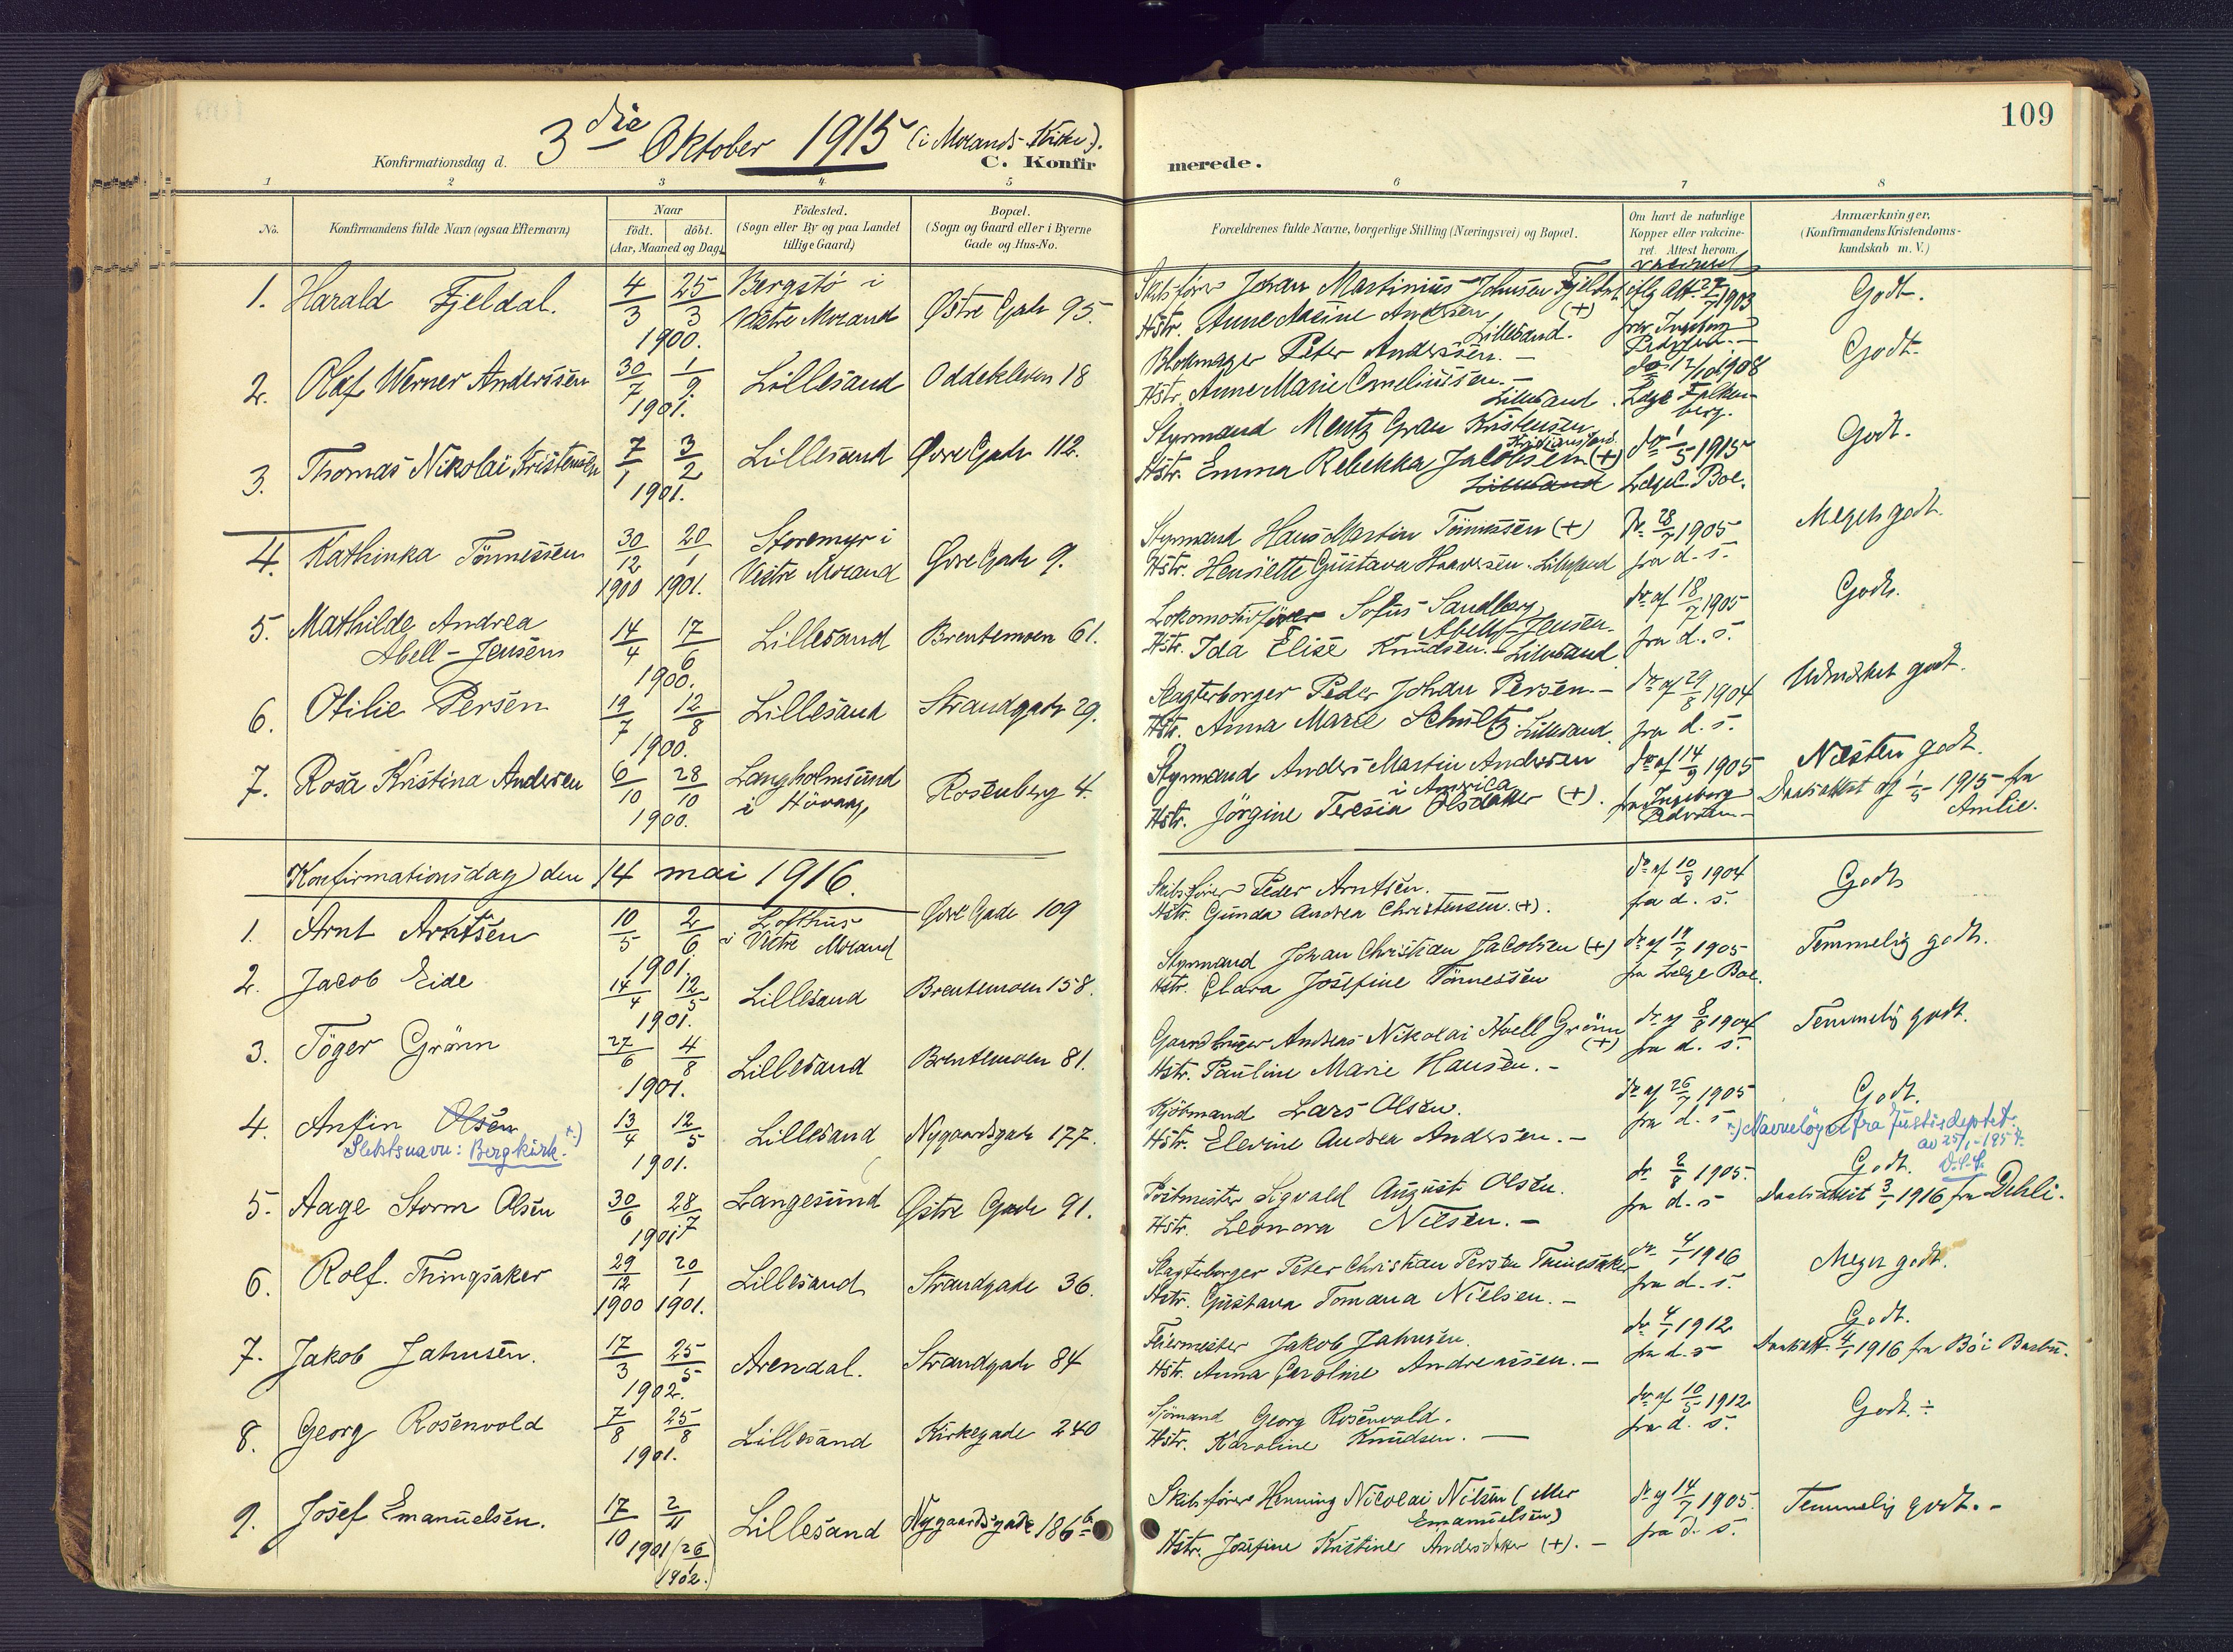 109
Konfirmationsdag d. 3 die Oktober 1915 (i Morands-Kirke).
C. Konfirmerede.
1 2 3 4 5 6 7 8
No.
Konfirmandens fulde Navn (ogsaa Efternavn)
Naar
födt. döbt.
(Aar, Maaned og Dag)
Födested.
(Sogn eller By og paa Landet
tillige Gaard)
Bopæl.
(Sogn og Gaard eller i Byerne
Gade og Hus-No.
Forældrenes fulde Navne, borgerlige Stilling (Næringsvei) og Bopæl.
Om havt de naturlige
Kopper eller vakcine-
ret. Attest herom.
Anmærkninger,
(Konfirmandens Kristendoms-
kundskab m. V.)
1. Harald Fjeldal. 4/3 25/3 1900. Bergstö i Vestre Moland Østre Gade 95.
Skibsförer Johan Martinius Johnsen Fjeldal
Hstr. Anne Meine Andersen (+) Lillesand.
vaccineret iflg Att. 27/7 1903
fra Ingeborg Pedersen.
Godt.
2. Olaf Werner Anderssen 30/7 1/9 1901. Lillesand Oddekleven 18
Blokmager Peter Anderssen. -
Hstr. Anne Marie Corneliussen. - Lillesand.
do 12/10 1908
Læge Falken-
berg.
Godt.
3. Thomas Nikolai Kristensen 7/1 3/2 1901. Lillesand Øvre Gade 112.
Styrmand Mentz Gran Kristensen Kristiansand.
Hstr. Emma Rebekka Jacobsen (+) Lillesand
do 1/5 1915
Læge Boe.
Godt.
4. Kathinka Tönnessen 30/12 1900 20/1 1901. Storemyr i Vestre Moland Øvre Gade 9.
Styrmand Hans Martin Tönnessen (+)
Hstr. Henriette Gustava Haavesen. Lillesand
Do. 28/7 1905
fra d. s.
Meget godt.
5. Mathilde Andrea
Abell-Jensen 14/4 17/6 1900. Lillesand Brentemoen 61.
Lokomotivförer Sofus Sandberg
Abell-Jensen.
Hstr. Ida Elise Knudsen. - Lillesand.
do af 18/7 1905
fra d. s.
Godt.
6. Otilie Persen 19/7 12/8 1900. Lillesand Strandgade 29.
Slagterborger Peder Johan Persen. -
Hstr. Anna Marie Schultz. Lillesand.
do af 29/8 1904
fra d. s.
Udmerket godt.
7. Rosa Kristina Andersen 6/10 28/10 1900. Langholmsund
i Hövaag, Rosenberg 4.
Styrmand Anders Martin Andersen
i America
Hstr. Jörgine Teresia Olsdatter (+).
do af 14/9 1905
fra Ingeborg
Pedersen -
Næsten godt.
Daabsattest af 1/5 1915 fra
Amlie.
Konfirmationsdag den 14 mai 1916.
1. Arnt Arntsen 10/5 2/6 1901. Lofthus
i Vestre Moland Øvre Gade 109
Skibsförer Peder Arntsen.
Hstr. Gunda Andrea Christensen. (+).
do af 10/8 1904
fra d. s.
Godt
2. Jacob Eide 14/4 12/5 1901. Lillesand Brentemoen 158.
Styrmand Johan Christian Jacobsen (+)
Hstr. Clara Josefine Tönnessen
do af 19/7 1905
fra Læge Boe.
Temmelig godt.
3. Töger Grönn 27/6 4/8 1901. Lillesand Brentemoen 81.
Gaardbruger Andreas Nikolai Hoell Grönn (+)
Hstr. Pauline Marie Hansen. -
do af 8/8 1904
fra d. s.
Temmelig godt.
4. Anfin Olsen
Slektsnavn: Bergkirk. x) 13/4 12/5 1901. Lillesand Nygaardsgade 177.
Kjöbmand Lars Olsen.
Hstr. Elevine Andrea Andersen. -
do af 26/7 1905
fra d. s
Godt.
x) Navnelöyve fra Justisdeptet.
av 25/1-1954.
5. Aage Storm Olsen 30/6 28/7 1901 Langesund Østre Gade 91.
Postmester Sigvald August Olsen.
Hstr. Leonora Nilsen. -
do 2/8 1905.
fra d. s
Godt.
Daabsattest 3/1 1916 fra Dehli.
6. Rolf. Thingsaker 29/12 1900 20/1 1901. Lillesand Strandgade 36.
Slagterborger Peter Christian Persen Thingsaker
Hstr. Gustava Tomana Nielsen. -
do 4/1 1916
fra d. s.
Meget godt.
7. Jakob Jahnsen. 17/3 25/5 1902. Arendal. Strandgade 84
Feiermester Jakob Jahnsen.
Hstr. Anna Caroline Andreassen. -
do 4/1 1912
fra d. s
Godt.
Daabsatt. 4/1 1916 fra Bö i Barbu.
8. Georg Rosenvold 7/8 25/8 1901. Lillesand Kirkegade 240
Sjömand Georg Rosenvold.
Hstr. Karoline Knudsen. -
do af 10/5 1912
fra d. s.
Godt. ÷
9. Josef Emanuelsen. 17/10 2/11 1901 (26/1 1902.) Lillesand Nygaardsgade 186 b
Skibsförer Henning Nicolai Nilsen (eller
Emanuelsen)
Hstr. Josefine Kristine Andersdatter (+). -
do af 14/7 1905.
fra d. s.
Temmelig godt. -